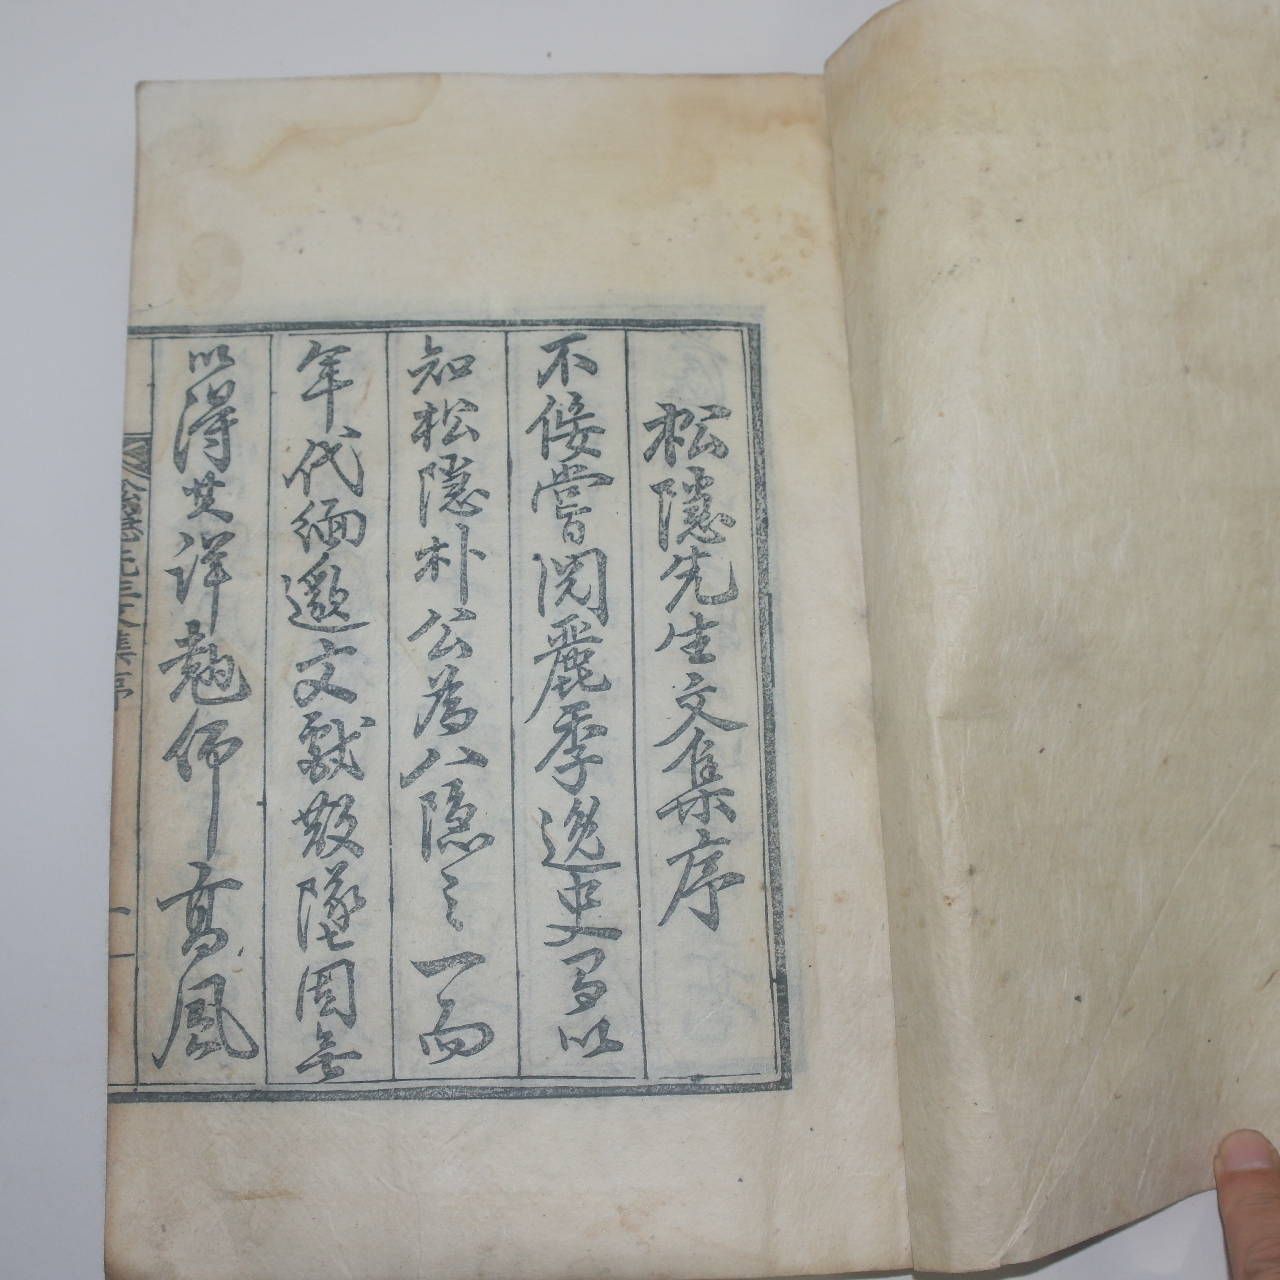 松隱先生文集序
不佞嘗閱麗季逸史多以
知松隱朴公爲八隱之一而
年代緬邈文獻散墜固無
以得其詳勉師高風
松隱先生文集序
一